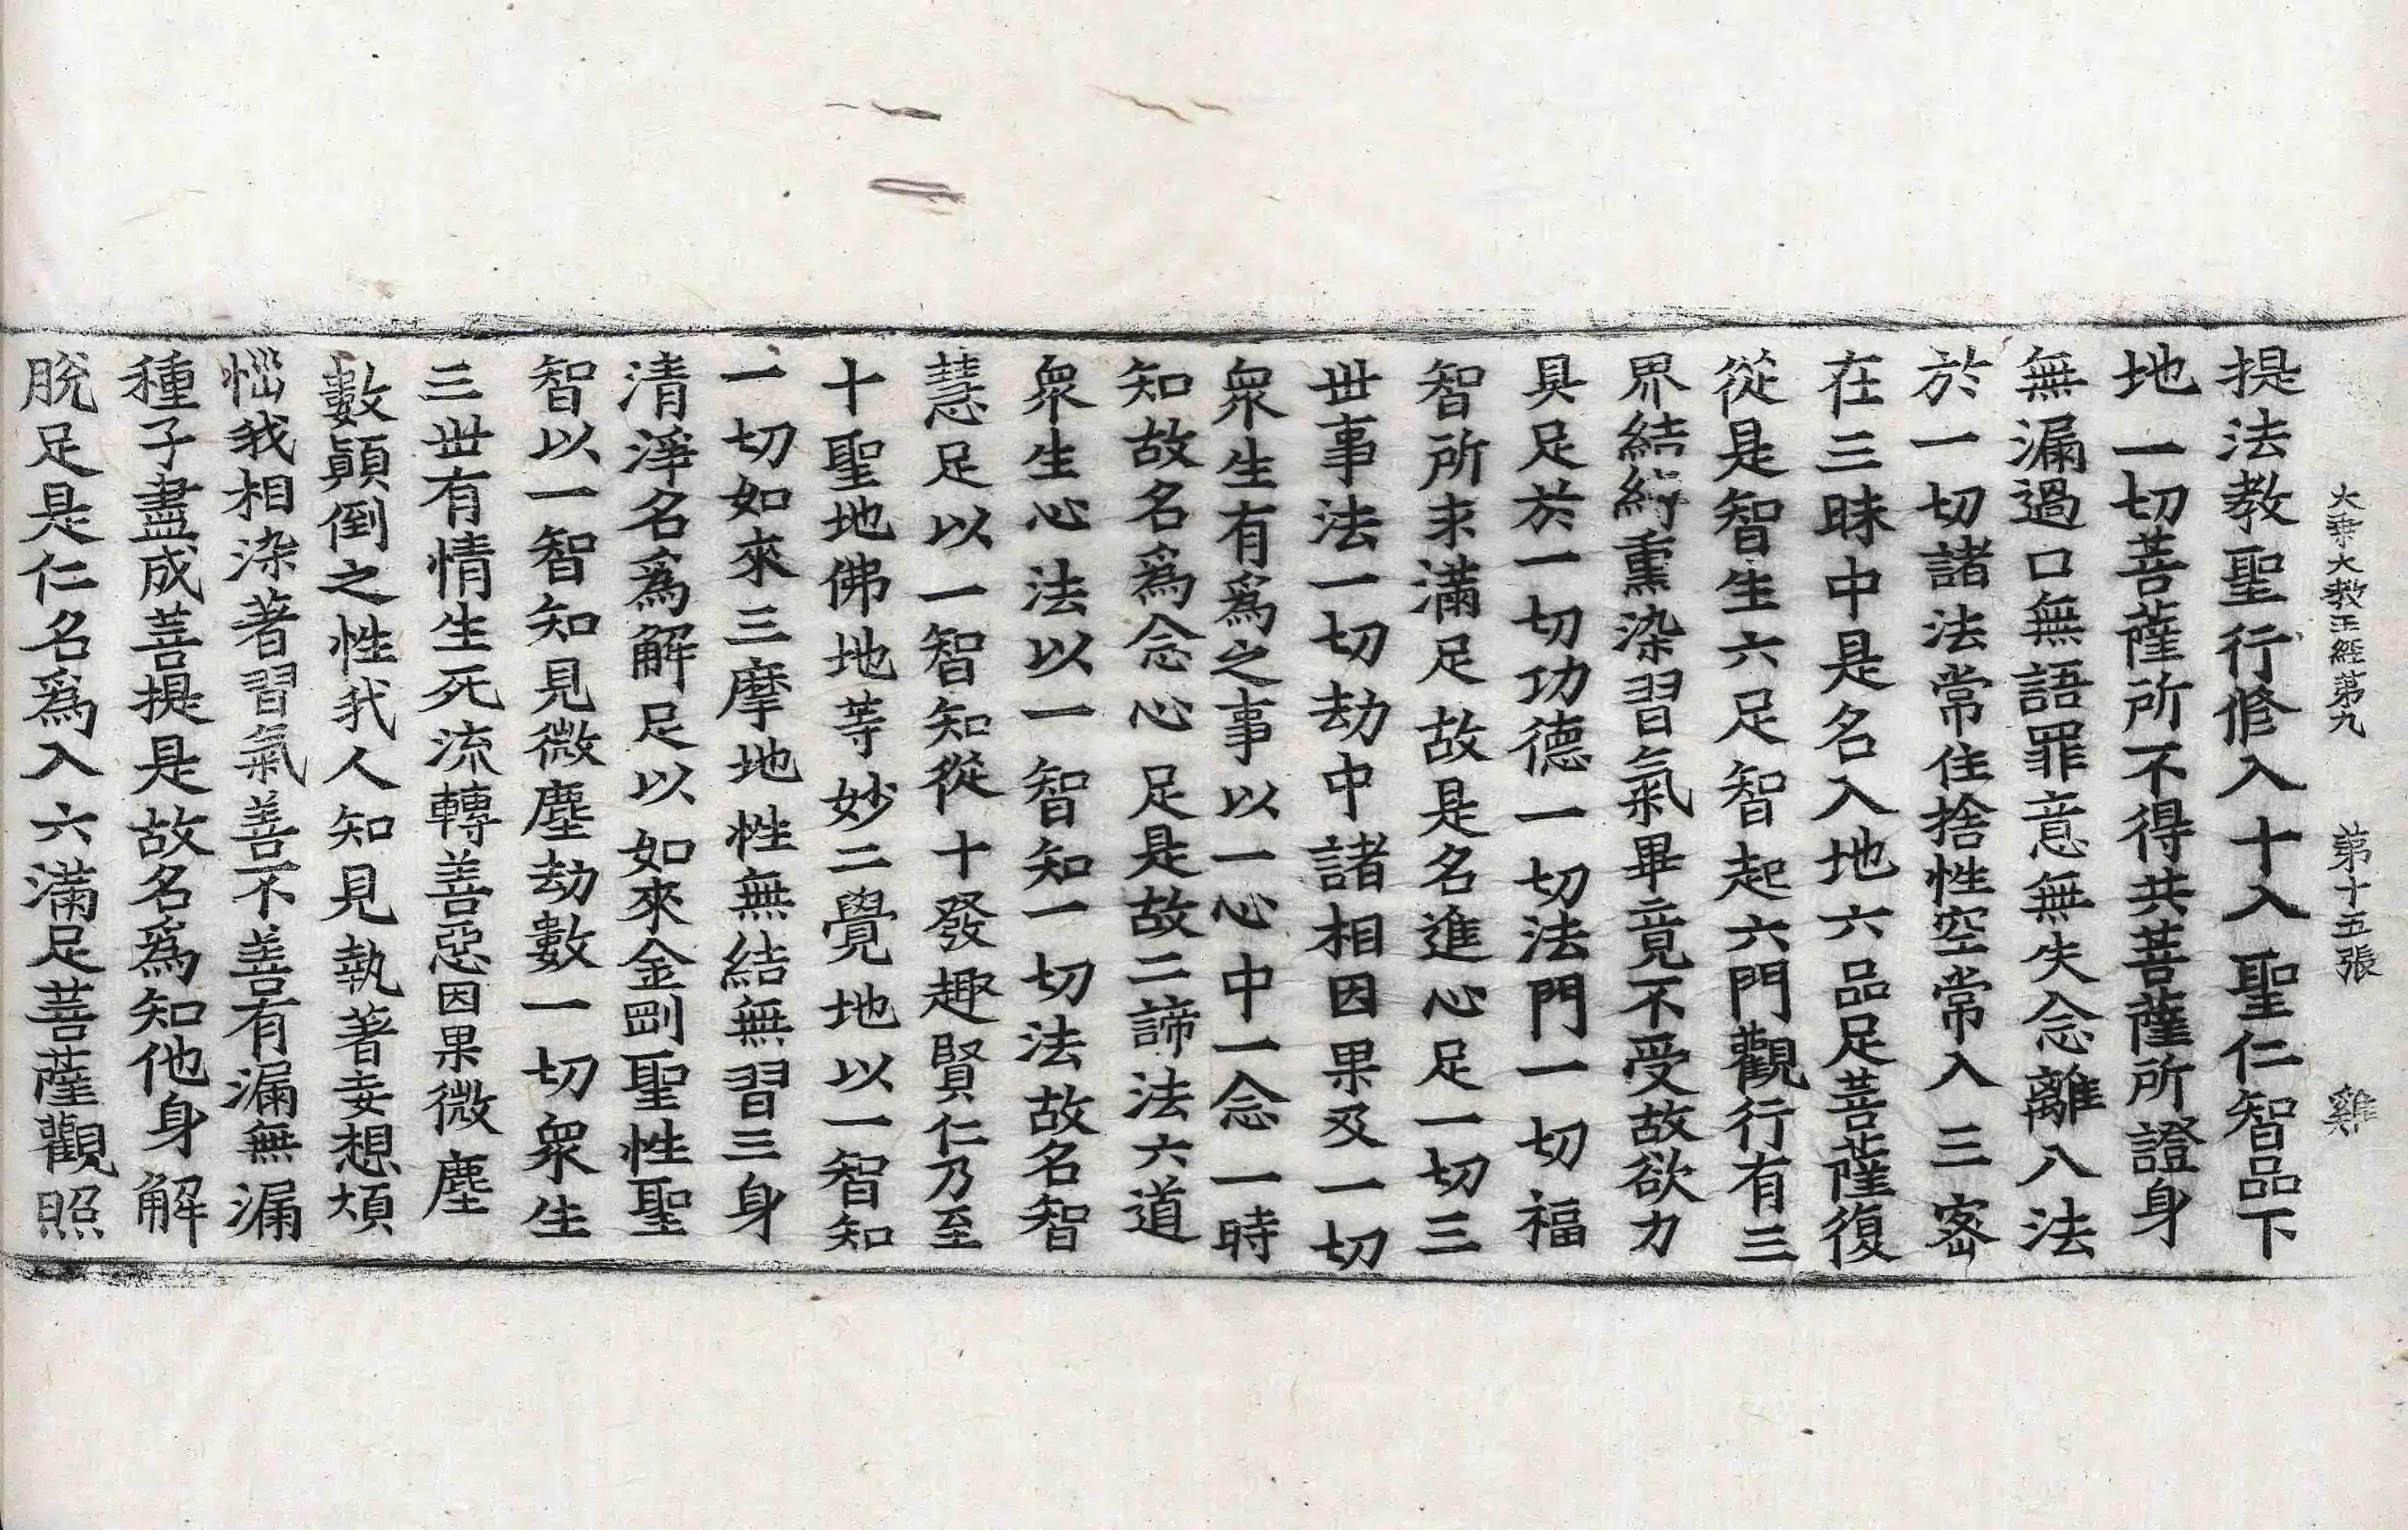 大乗大教王經第九 第十五張 雞
提法教聖行修入十入聖仁智品下
地一切菩薩所不得共菩薩所證身
無漏過口無語罪意無失念離八法
於一切諸法常住捨性空常入三密
在三昧中是名入地六品足菩薩復
從是智生六足智起六門觀行有三
界結縛熏染習氣畢竟不受故欲力
具足於一切功德一切法門一切福
智所求滿足故是名進心足一切三
世事法一切劫中諸相因果及一切
衆生有爲之事以一心中一念一時
知故名爲念心足是故二諦法六道
衆生心法以一智知一切法故名智
慧足以一智知從十發趣賢仁乃至
十聖地佛地等妙二覺地以一智知
一切如來三摩地性無結無習三身
清淨名爲解足以如來金剛聖性聖
智以一智知見微塵劫數一切衆生
三世有情生死流轉善惡因果微塵
數顚倒之性我人知見執著妄想煩
惱我相染著習氣善不善有漏無漏
種子盡成菩提是故名爲知他身解
脫足是仁名爲入六滿足菩薩觀照